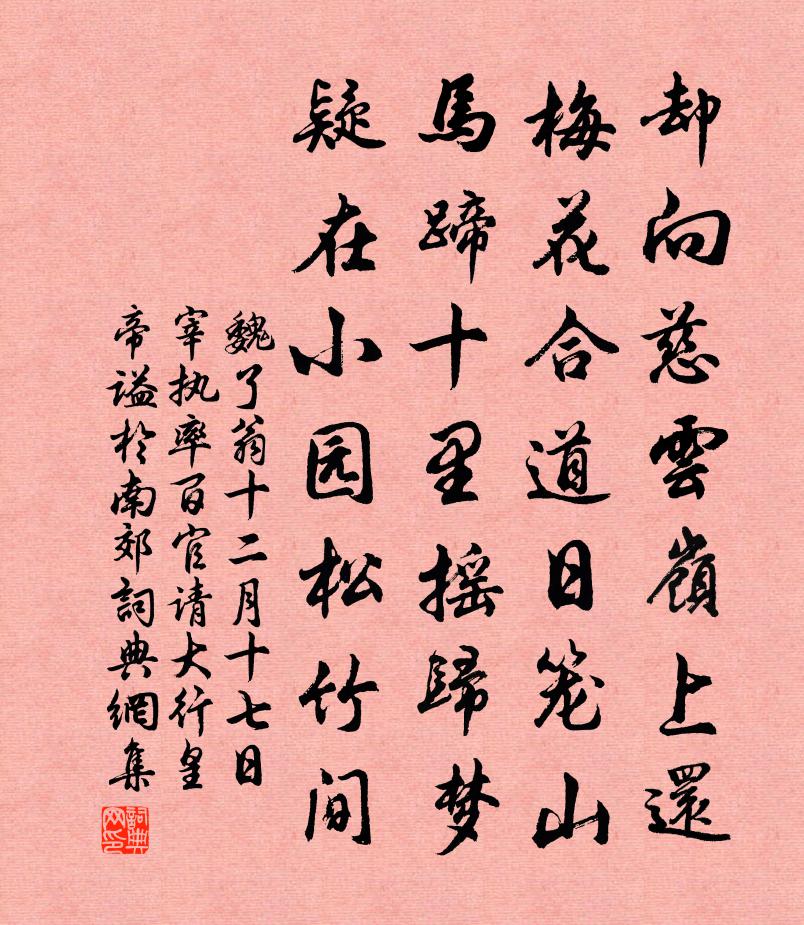 却向慈雲嶺上還
梅花合道日笼山
馬蹄十里摇歸梦
疑在小园松竹间
魏了翁十二月十七日
宰执率百官请大行皇
帝谥於南郊詞典網集
詞典网印